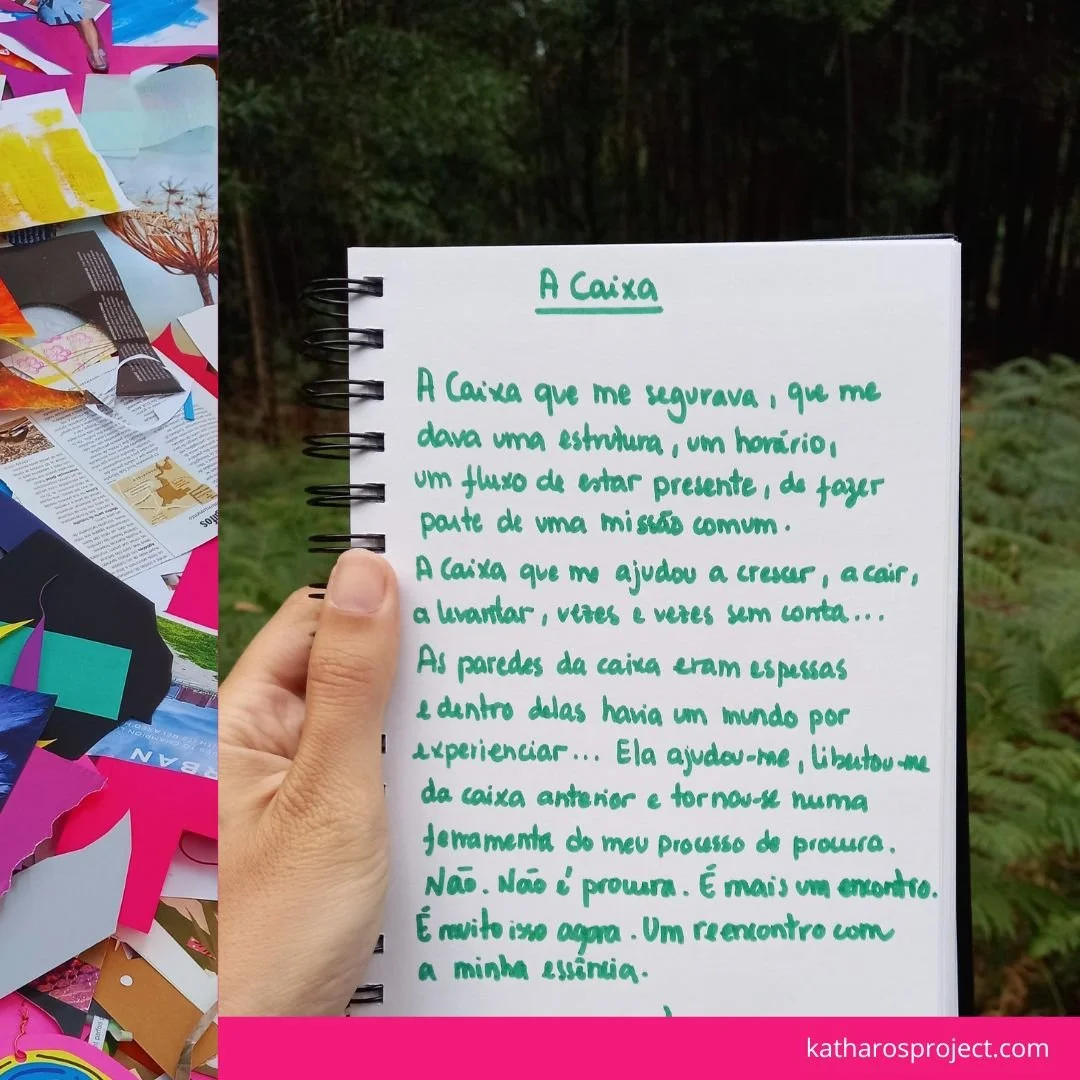 A Caixa
A Caixa que me segurava, que me
dava uma estrutura, um horário,
um fluxo de estar presente, de fazer
parte de uma missão comum.
A Caixa que me ajudou a crescer, a cair,
a levantar, vezes e vezes sem conta...
As paredes da caixa eram espessas
e dentro delas havia um mundo por
experienciar... Ela ajudou-me, libertou-me
da caixa anterior e tornou-se numa
ferramenta do meu processo de procura.
Não. Não é procura. É mais um encontro.
É muito isso agora. Um reencontro com
a minha essência.
katharosproject.com